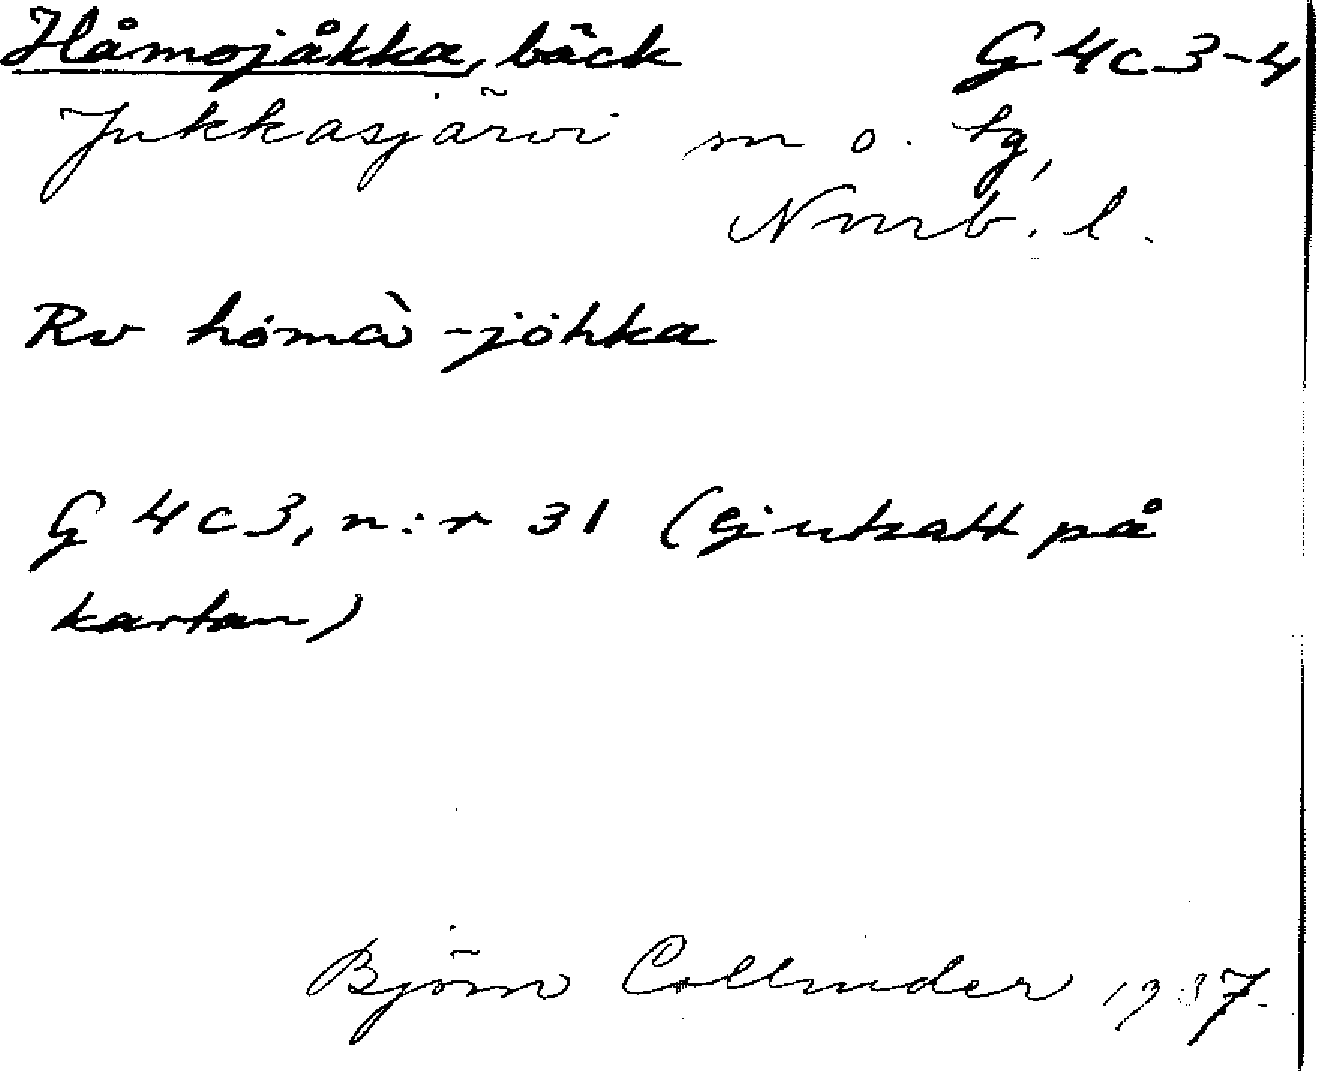 Håmojåkka, bäck G 4c 3-4
Jukkasjärvi sn o. tg,
Nrrb. l.
Rv hómà -jòhka
G 4 c 3, n:r 31 (ej utsatt på
kartan)
Björn Collinder 1937.